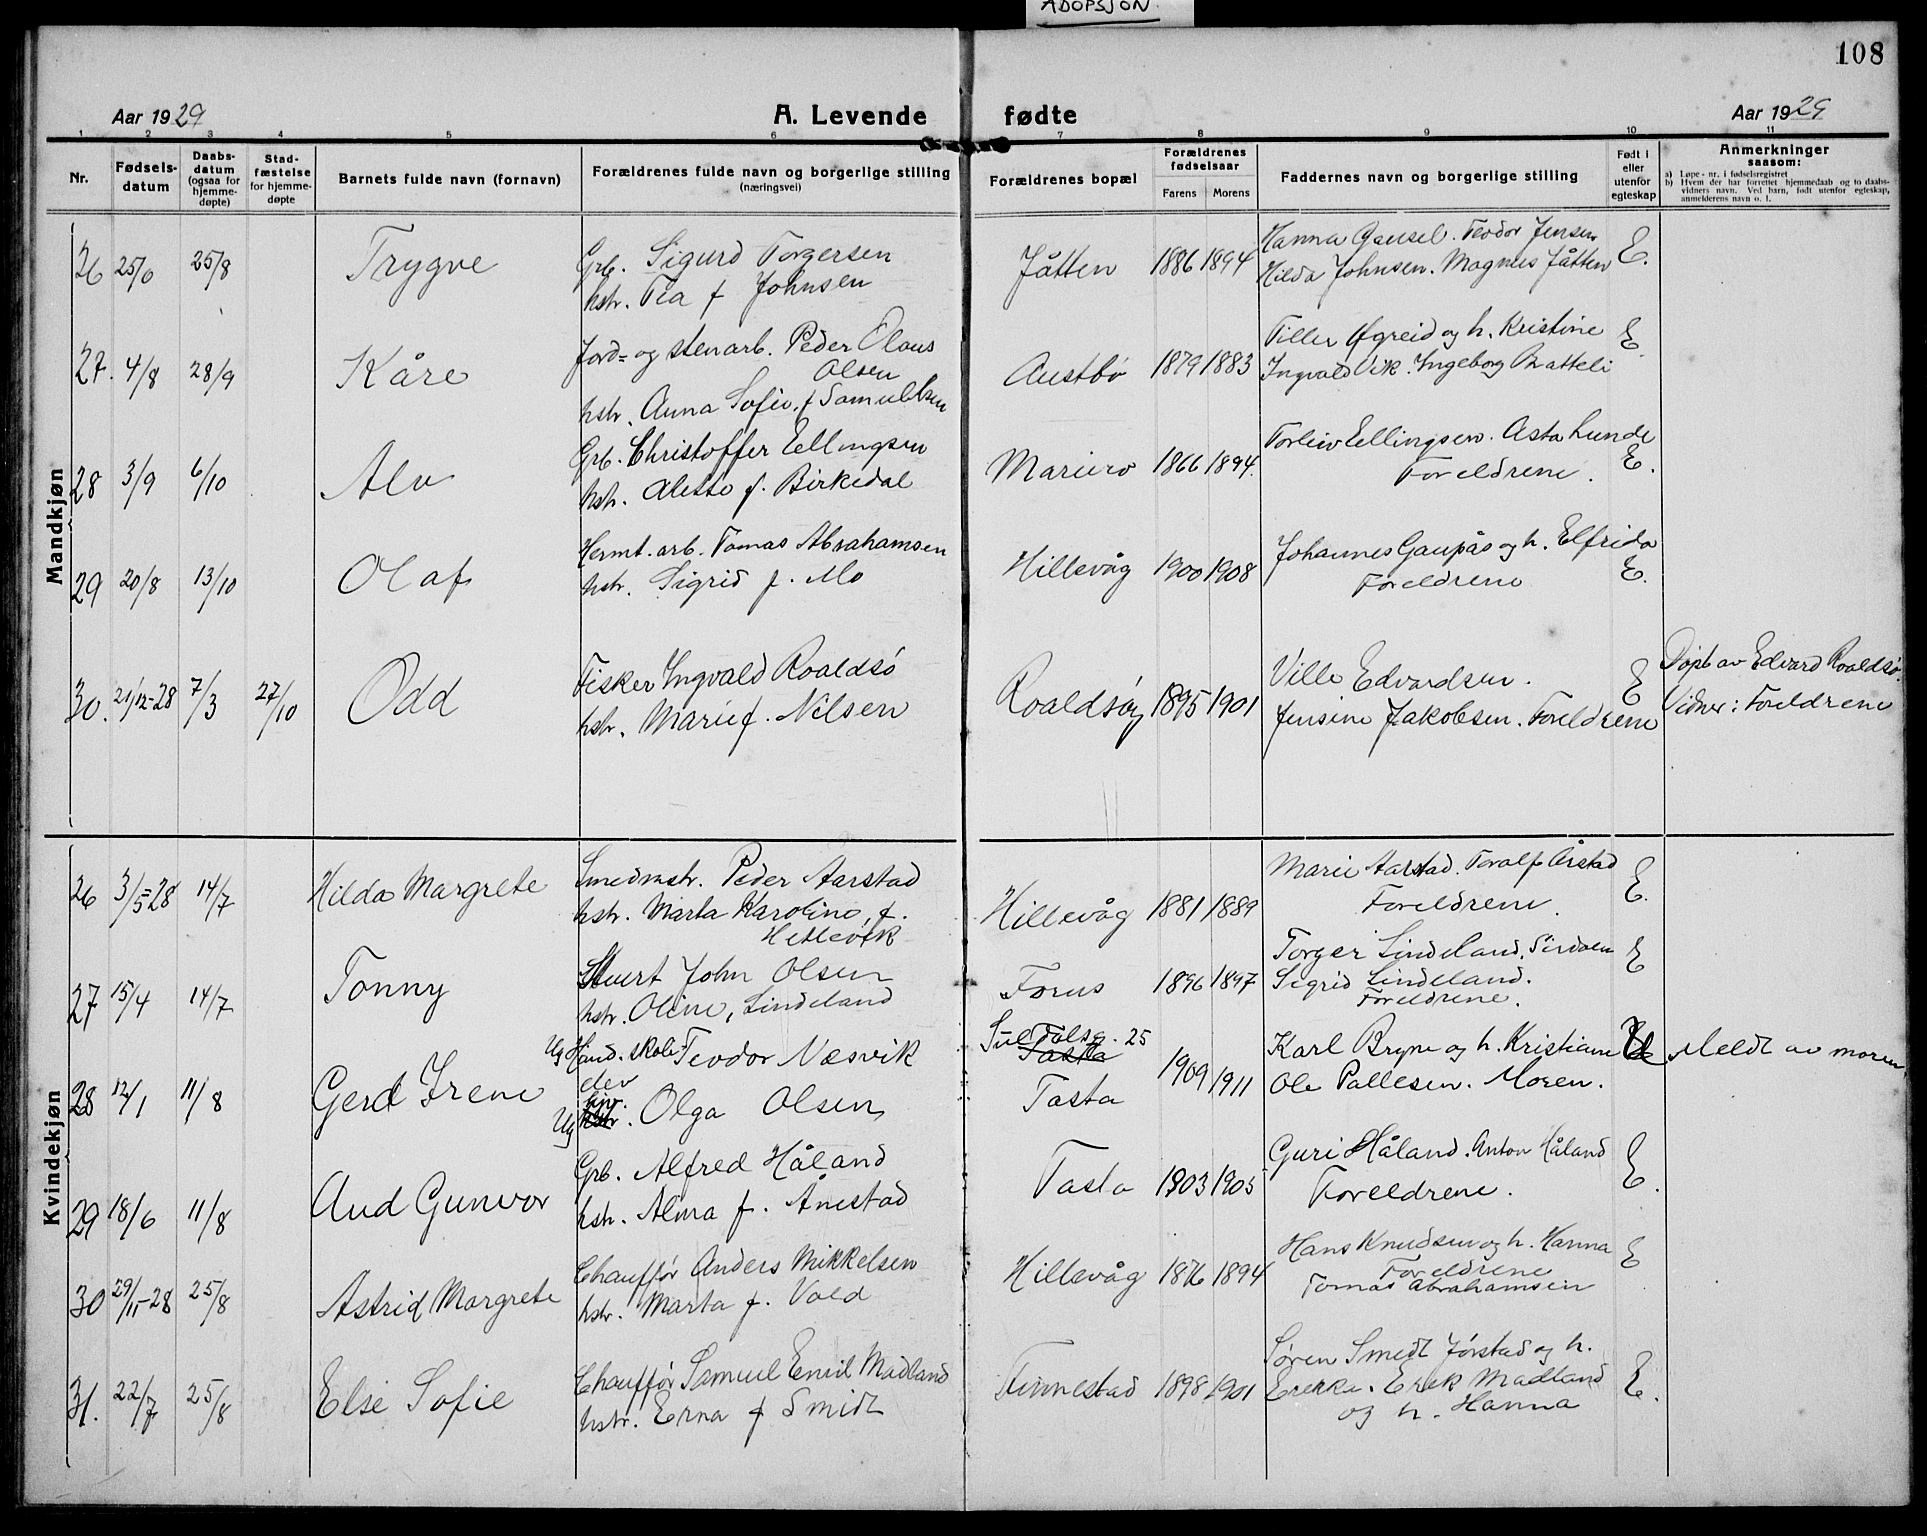 ADOPSJON
108
Aar 1929 A. Levende fødte Aar 1929
1 2 3 4 5 6 7 8 9 10 11
Nr. Fødsels-datum Daabs-datum (ogsaa for hjemme-døpte) Stad-fæstelse for hjemme-døpte Barnets fulde navn (fornavn) Forældrenes fulde navn og borgerlige stilling (næringsvei) Forældrenes bopæl Forældrenes fødselsaar Farens Morens Faddernes navn og borgerlige stilling Født i eller utenfor egteskap Anmerkninger saasom:
a) Løpe-nr. i fødselsregistret
b) Hvem der har forrettet hjemmedaab og to daabs-
vidners navn. Ved barn, født utenfor egteskap,
anmelderens navn o. l.
Mandkjøn
26 25/6 25/8 Trygve Grb. Sigurd Torgersen
hstr. Tea f Johnsen
Jåtten 1886 1894 Hanna Gausel. Teodor Jensen
Hilda Johnsen. Magnus Jåtten E.
27. 4/8 28/9 Kåre Jord= og stenarb. Peder Olaus
Olsen
hstr. Anna Sofie, f Samuelsen
Austbø 1879 1883 Øgreid og h. Kristine
Ingvald Vik. Ingeborg E.
28 3/9 6/10 Alv Grb. Christoffer Eellingsen
hstr. f. Birkedal
Mariero 1866 1894. Torleiv Eellingsen. Asta Lunde
Foreldrene. E.
29 20/8 13/10 Olaf Hermt. arb. Tomas Abrahamsen
hstr. Sigrid f. Mo
Hillevåg 1900 1908 Johannes Gaupås og h. Elfrida
Foreldrene E.
30. 21/12-28 7/3 27/10 Odd Fisker Ingvald Roaldsø
hstr. Marie f. Nilsen
Roaldsøy 1895 1901 Ville Edvardsen.
Jensine Jakobsen. Foreldrene E
Døpt av Edvard Roaldsø.
Vidner: Foreldrene
Kvindekjøn
26 3/5-28 14/7 Hilda Margrete Smedmstr. Peder Aarstad
hstr. Marta Karoline, f.
Hillevåg 1881 1889 Marie Aarstad. Toralf Årstad
Foreldrene. E.
27 15/4 14/7 Tonny Stuert John Olsen
hstr. Oline, Lindeland
Forus 1896 1897 Torger Lindeland,
Sigrid Lindeland.
Foreldrene. E
28 12/1 11/8 Gerd Irene Ug Hand. skole- Teodor Næsvik
elev
Ug hstr. Olga Olsen
25
Tasta
Tasta 1909 1911 Karl Bryne og h. Kristiane
Ole Pallesen. Moren. U Meldt av moren
29 18/6 11/8 Aud Gunvor Grb. Alfred Håland
hstr. Alma f. Ånestad
Tasta 1903 1905 Guri Håland. Anton Håland
Foreldrene. E.
30 29/11-28 25/8 Astrid Margrete Chauffør Anders Mikkelsen
hstr. Marta f. Vold
Hillevåg 1876 1894 Hans Knudsen og h. Hanna
Foreldrene
Tomas Abrahamsen E
31. 22/7 25/8 Else Sofie Chauffør Samuel Emil Madland
hstr. Erna f Smidt
Finnestad 1898 1901 Søren Smedt Jørstad og h.
Erikka. Erik Madland
og h. Hanna E.